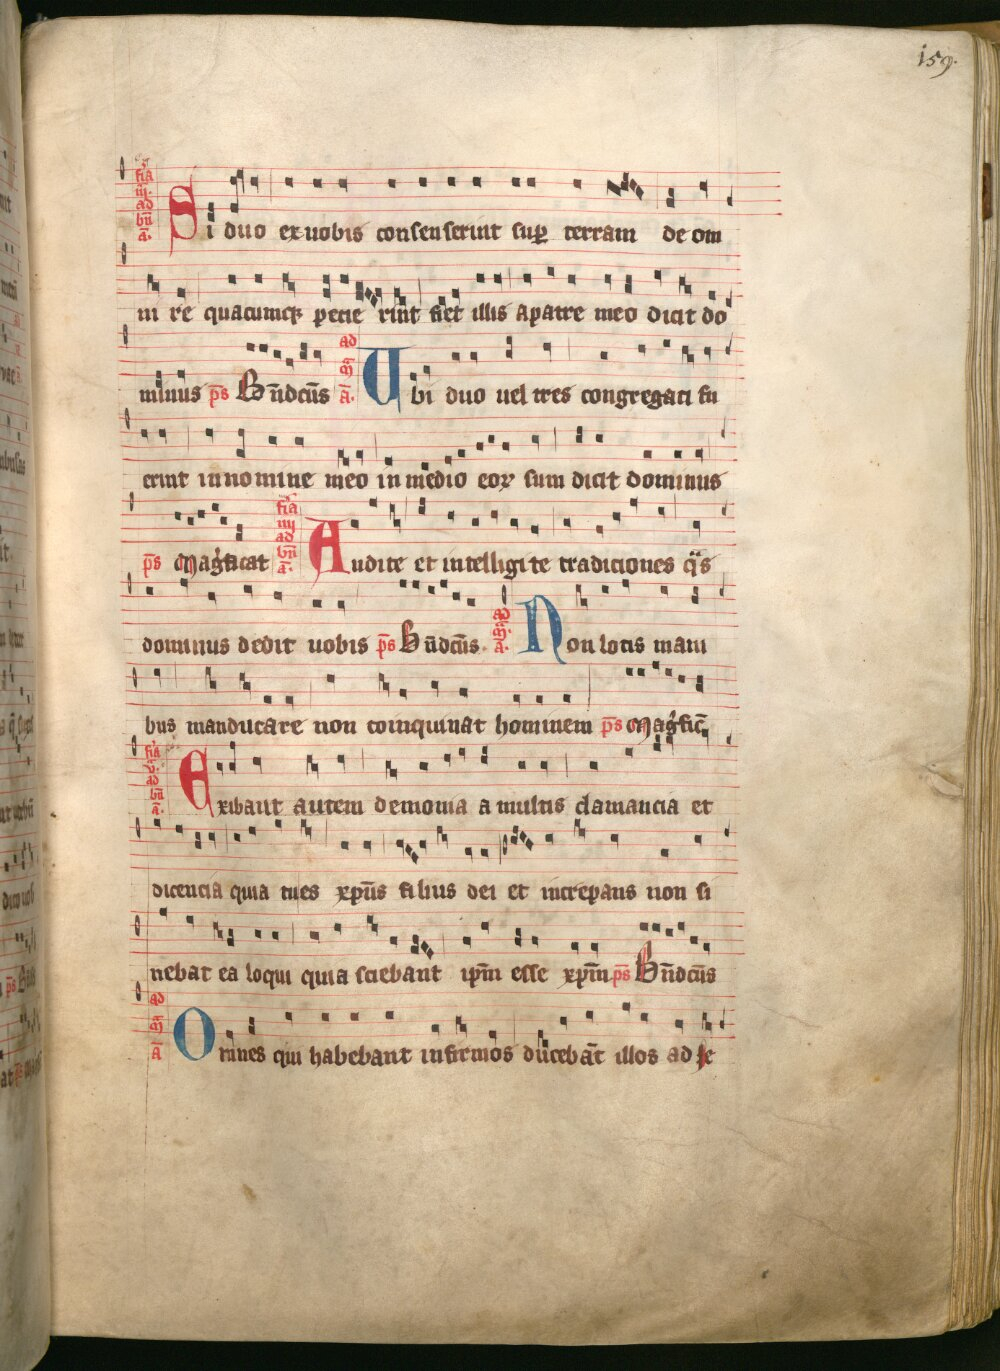 159.
fia iij. ad bn̄ a.
Si duo ex uobis consenserint sup terram de om
ni re quacumq; pecie rint fiet illis a patre meo dicit do
minus ps Bn̄dcūs ad m̄ a. Ubi duo uel tres congregati fu
erint in nomine meo in medio eoꝝ sum dicit dominus
ps Magficat fia iiij ad bn̄ a. Audite et intelligite tradiciones q̄s
dominus dedit uobis ps Bn̄dcūs. ad m̄. a. Non lotis mani
bus manducare non coinquinat hominem ps Magfic̄
fia v. ad bn̄ a.
Exibant autem demonia a multis clamancia et
dicencia quia tu es xp̄us filius dei et increpans non si
nebat ea loqui quia sciebant ip̄m esse xp̄m ps Bn̄dcūs
ad m̄ a
Omnes qui habebant infirmos ducebāt illos ad ie